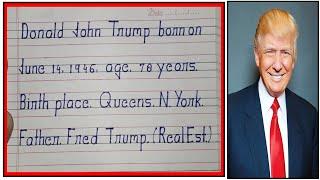 Date
Donald John Trump born on
June 14. 1946. age. 78 years.
Birth place. Queens. N. York.
Father. Fred Trump. (Real Est.)